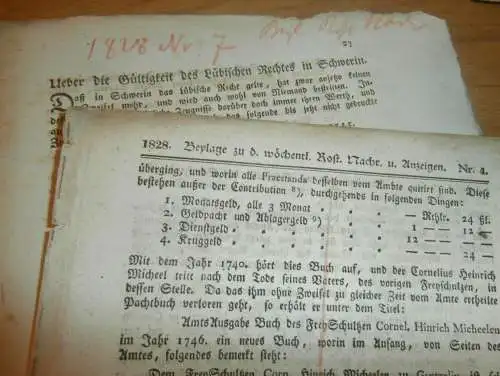 1828 Nr. 7
23
Ueber die Gültigkeit des Lübischen Rechtes in Schwerin.
Daß in Schwerin das lübische Recht gelte, hat zwar anjetzo keinen
Zweifel mehr, und wird auch wohl von Niemand bestritten. In-
Zeugnisse darüber doch immer ihren Werth, und
das folgende bis jetzt nicht gedruckte
1828. Beylage zu d. wöchentl. Rost. Nachr. u. Anzeigen. Nr. 4.
überging, und worin alle Praestanda desselben vom Ambte quitirt sind. Diese
bestehen außer der Contribution 8), durchgehends in folgenden Dingen:
1. Monatsgeld, alle 3 Monat — Rthlr. 24 ßl.
2. Geldpacht und Ablagergeld 9) 1 — 12 —
3. Dienstgeld — 12 —
4. Kruggeld — 24 —
Mit dem Jahr 1740. hört dies Buch auf, und der Cornelius Heinrich
Micheel tritt nach dem Tode seines Vaters, des vorigen Freyschulzen, in
dessen Stelle. Da das ihm ohne Zweifel zu gleicher Zeit vom Amte ertheilte
Pachtbuch verloren geht, so erhält er unter dem Titel:
Amts Ausgabe Buch des FreySchultzen Cornel. Hinrich Micheelen
im Jahr 1746. ein neues Buch, worin im Anfang, von Seiten des
Amtes, folgendes bemerkt steht:
Dem FreySchultzen Corn. Hinrich Micheelen zu